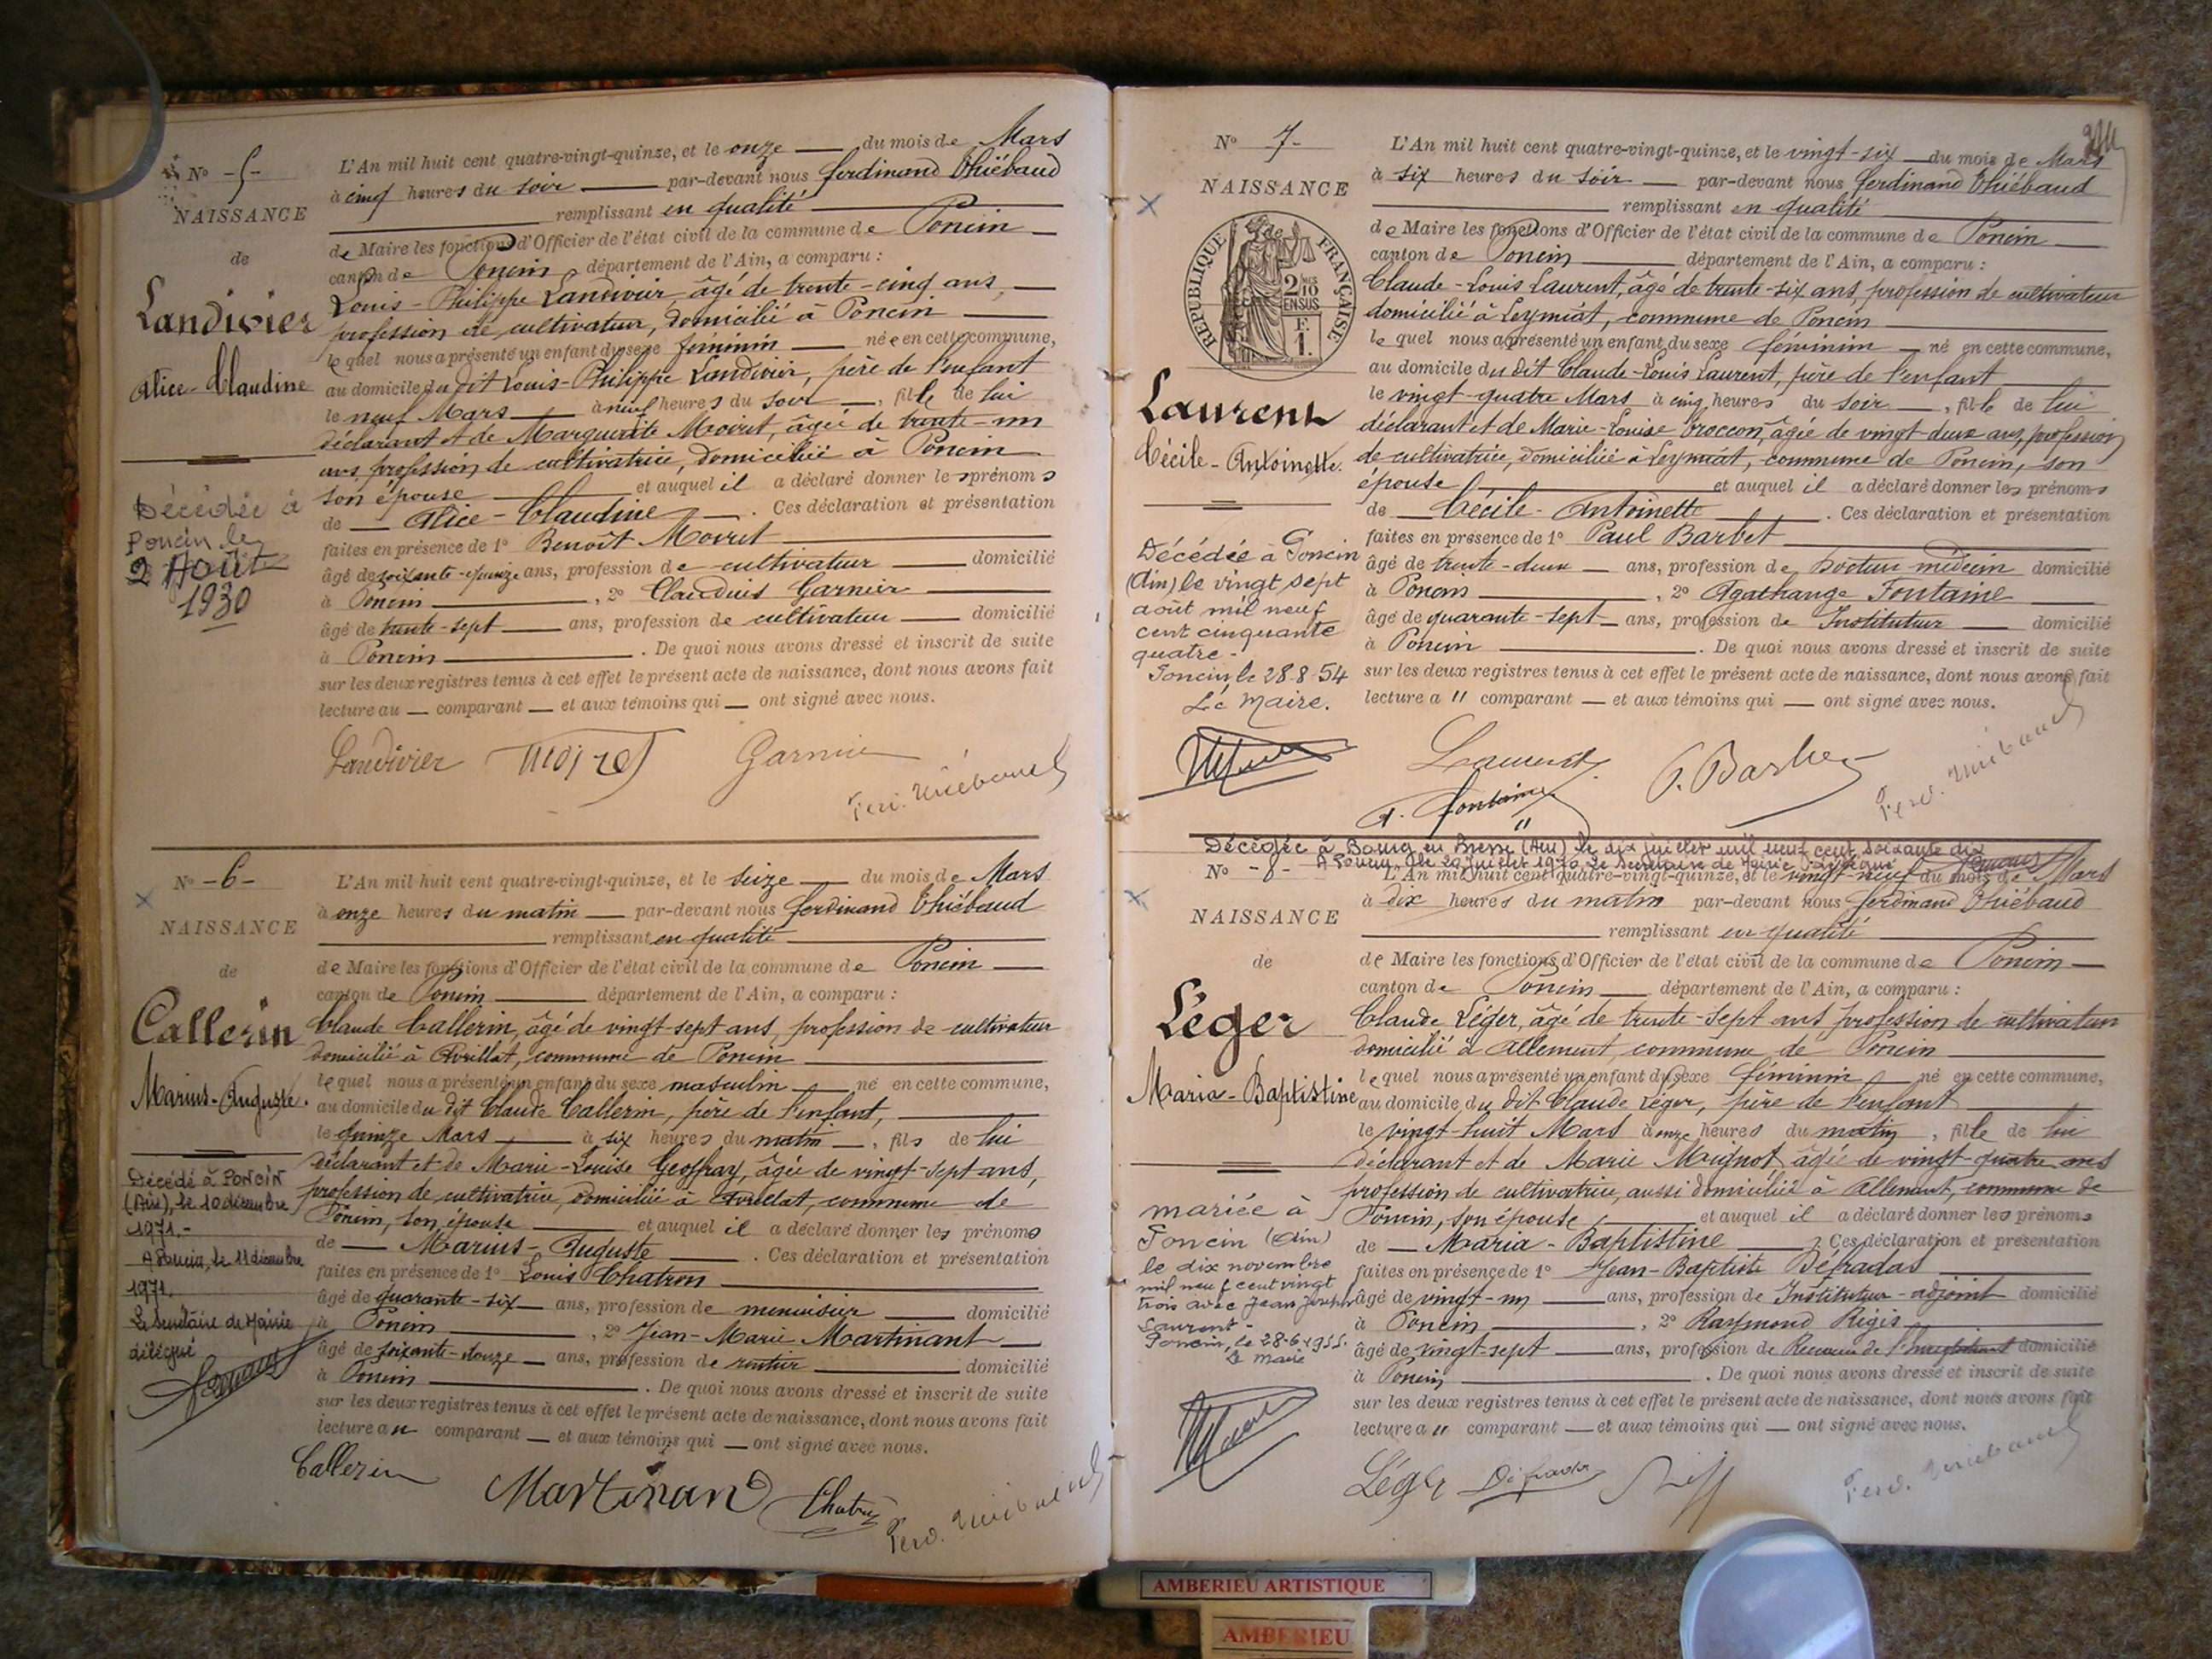 N° -5-
NAISSANCE
de
Landivier
Alice-Claudine
Décédée à
Poncin le
2 Août
1930
L'An mil huit cent quatre-vingt-quinze, et le onze du mois de Mars
à cinq heures du soir par-devant nous Ferdinand Thiébaud
remplissant en qualité
de Maire les fonctions d'Officier de l'état civil de la commune de Poncin
canton de Poncin, département de l'Ain, a comparu :
Louis-Philippe Landivier, âgé de trente-cinq ans,
profession de cultivateur, domicilié à Poncin
lequel nous a présenté un enfant du sexe féminin née en cette commune,
au domicile du dit Louis-Philippe Landivier, père de l'enfant
le neuf Mars à neuf heures du soir, fille de lui
déclarant et de Marguerite Moiret, âgée de trente-un
ans, profession de cultivatrice, domiciliée à Poncin
son épouse et auquel il a déclaré donner les prénoms
de Alice-Claudine. Ces déclaration et présentation
faites en présence de 1° Benoît Moiret
âgé de soixante-quinze ans, profession de cultivateur domicilié
à Poncin, 2° Claudius Garnier
âgé de trente-sept ans, profession de cultivateur domicilié
à Poncin. De quoi nous avons dressé et inscrit de suite
sur les deux registres tenus à cet effet le présent acte de naissance, dont nous avons fait
lecture au comparant et aux témoins qui ont signé avec nous.
Landivier Moiret Garnier
Ferd. Thiébaud
N° -6-
NAISSANCE
de
Callerin
Marius-Auguste.
Décédé à PONCIN
(Ain), le 10 décembre
1971.-
A Poncin, le 11 décembre
1971.
Le Secrétaire de Mairie
délégué
L'An mil huit cent quatre-vingt-quinze, et le seize du mois de Mars
à onze heures du matin par-devant nous Ferdinand Thiébaud
remplissant en qualité
de Maire les fonctions d'Officier de l'état civil de la commune de Poncin
canton de Poncin département de l'Ain, a comparu :
Claude Callerin, âgé de vingt-sept ans, profession de cultivateur
domicilié à Avrillat, commune de Poncin
lequel nous a présenté un enfant du sexe masculin né en cette commune,
au domicile du dit Claude Callerin, père de l'enfant,
le quinze Mars à six heures du matin, fils de lui
déclarant et de Marie-Louise Geoffray, âgée de vingt-sept ans,
profession de cultivatrice, domiciliée à Avrillat, commune de
Poncin, son épouse et auquel il a déclaré donner les prénoms
de Marius-Auguste. Ces déclaration et présentation
faites en présence de 1° Louis Chatron
âgé de quarante-six ans, profession de menuisier domicilié
à Poncin, 2° Jean-Marie Martinant
âgé de soixante-douze ans, profession de rentier domicilié
à Poncin. De quoi nous avons dressé et inscrit de suite
sur les deux registres tenus à cet effet le présent acte de naissance, dont nous avons fait
lecture au comparant et aux témoins qui ont signé avec nous.
Callerin Martinand Chatron
Ferd. Thiébaud
N° 7-
NAISSANCE
de
RÉPUBLIQUE FRANÇAISE
2/10 EN SUS
F. 1.
Laurent
Cécile-Antoinette.
Décédée à Poncin
(Ain) le vingt sept
août mil neuf
cent cinquante
quatre-
Poncin le 28-8-54
Le Maire.
L'An mil huit cent quatre-vingt-quinze, et le vingt-six du mois de Mars
à six heures du soir par-devant nous Ferdinand Thiébaud
remplissant en qualité
de Maire les fonctions d'Officier de l'état civil de la commune de Poncin
canton de Poncin département de l'Ain, a comparu :
Claude-Louis Laurent, âgé de trente-six ans, profession de cultivateur
domicilié à Leymiat, commune de Poncin
lequel nous a présenté un enfant du sexe féminin né en cette commune,
au domicile du dit Claude-Louis Laurent, père de l'enfant
le vingt-quatre Mars à cinq heures du soir, fille de lui
déclarant et de Marie-Louise Broccon, âgée de vingt-deux ans, profession
de cultivatrice, domiciliée à Leymiat, commune de Poncin, son
épouse et auquel il a déclaré donner les prénoms
de Cécile-Antoinette. Ces déclaration et présentation
faites en présence de 1° Paul Barbet
âgé de trente-deux ans, profession de Docteur médecin domicilié
à Poncin, 2° Agathange Fontaine
âgé de quarante-sept ans, profession de Instituteur domicilié
à Poncin. De quoi nous avons dressé et inscrit de suite
sur les deux registres tenus à cet effet le présent acte de naissance, dont nous avons fait
lecture a " comparant et aux témoins qui ont signé avec nous.
Laurent P. Barbet
A. Fontaine
Ferd. Thiébaud
Décédée à Bourg en Bresse (Ain) le dix juillet mil neuf cent soixante dix
A Poncin, le 20 Juillet 1970 Le Secrétaire de Mairie délégué
N° -8-
NAISSANCE
de
Léger
Maria-Baptistine
mariée à
Poncin (Ain)
le dix novembre
mil neuf cent vingt
trois avec Jean Joseph
Laurent-
Poncin, le 28-6-1955.
Le Maire
L'An mil huit cent quatre-vingt-quinze, et le vingt-neuf du mois de Mars
à dix heures du matin par-devant nous Ferdinand Thiébaud
remplissant en qualité
de Maire les fonctions d'Officier de l'état civil de la commune de Poncin
canton de Poncin département de l'Ain, a comparu :
Claude Léger, âgé de trente-sept ans, profession de cultivateur
domicilié à Allement, commune de Poncin
lequel nous a présenté un enfant du sexe féminin né en cette commune,
au domicile du dit Claude Léger, père de l'enfant
le vingt-huit Mars à onze heures du matin, fille de lui
déclarant et de Marie Mignot, âgée de vingt-quatre ans
profession de cultivatrice, aussi domiciliée à Allement, commune de
Poncin, son épouse et auquel il a déclaré donner les prénoms
de Maria-Baptistine. Ces déclaration et présentation
faites en présence de 1° Jean-Baptiste Défradas
âgé de vingt-un ans, profession de Instituteur-adjoint domicilié
à Poncin, 2° Raymond Régis
âgé de vingt-sept ans, profession de Receveur de l'Enregistrement domicilié
à Poncin. De quoi nous avons dressé et inscrit de suite
sur les deux registres tenus à cet effet le présent acte de naissance, dont nous avons fait
lecture a " comparant et aux témoins qui ont signé avec nous.
Léger Défradas
Ferd. Thiébaud
AMBERIEU ARTISTIQUE
AMBERIEU